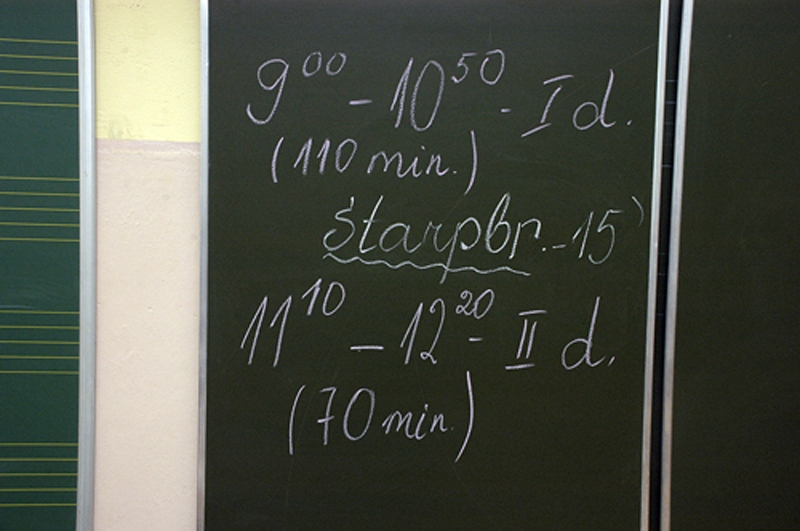 9⁰⁰ - 10⁵⁰ - I d.
(110 min.)
Starpbr. - 15'
11¹⁰ - 12²⁰ - II d.
(70 min.)